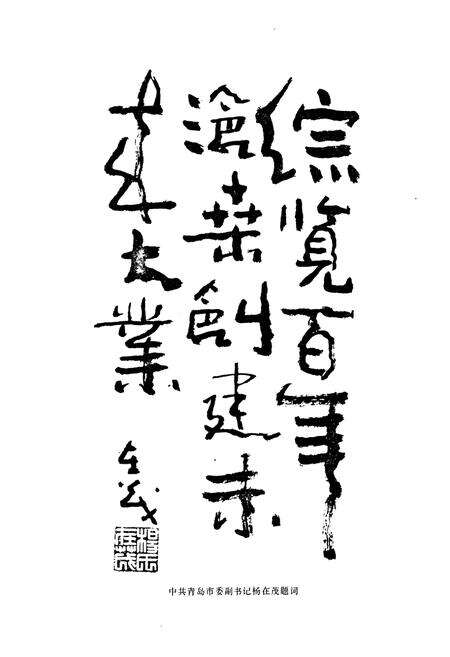 综览百年
沧桑创建未
来大业
在茂
中共青岛市委副书记杨在茂题词